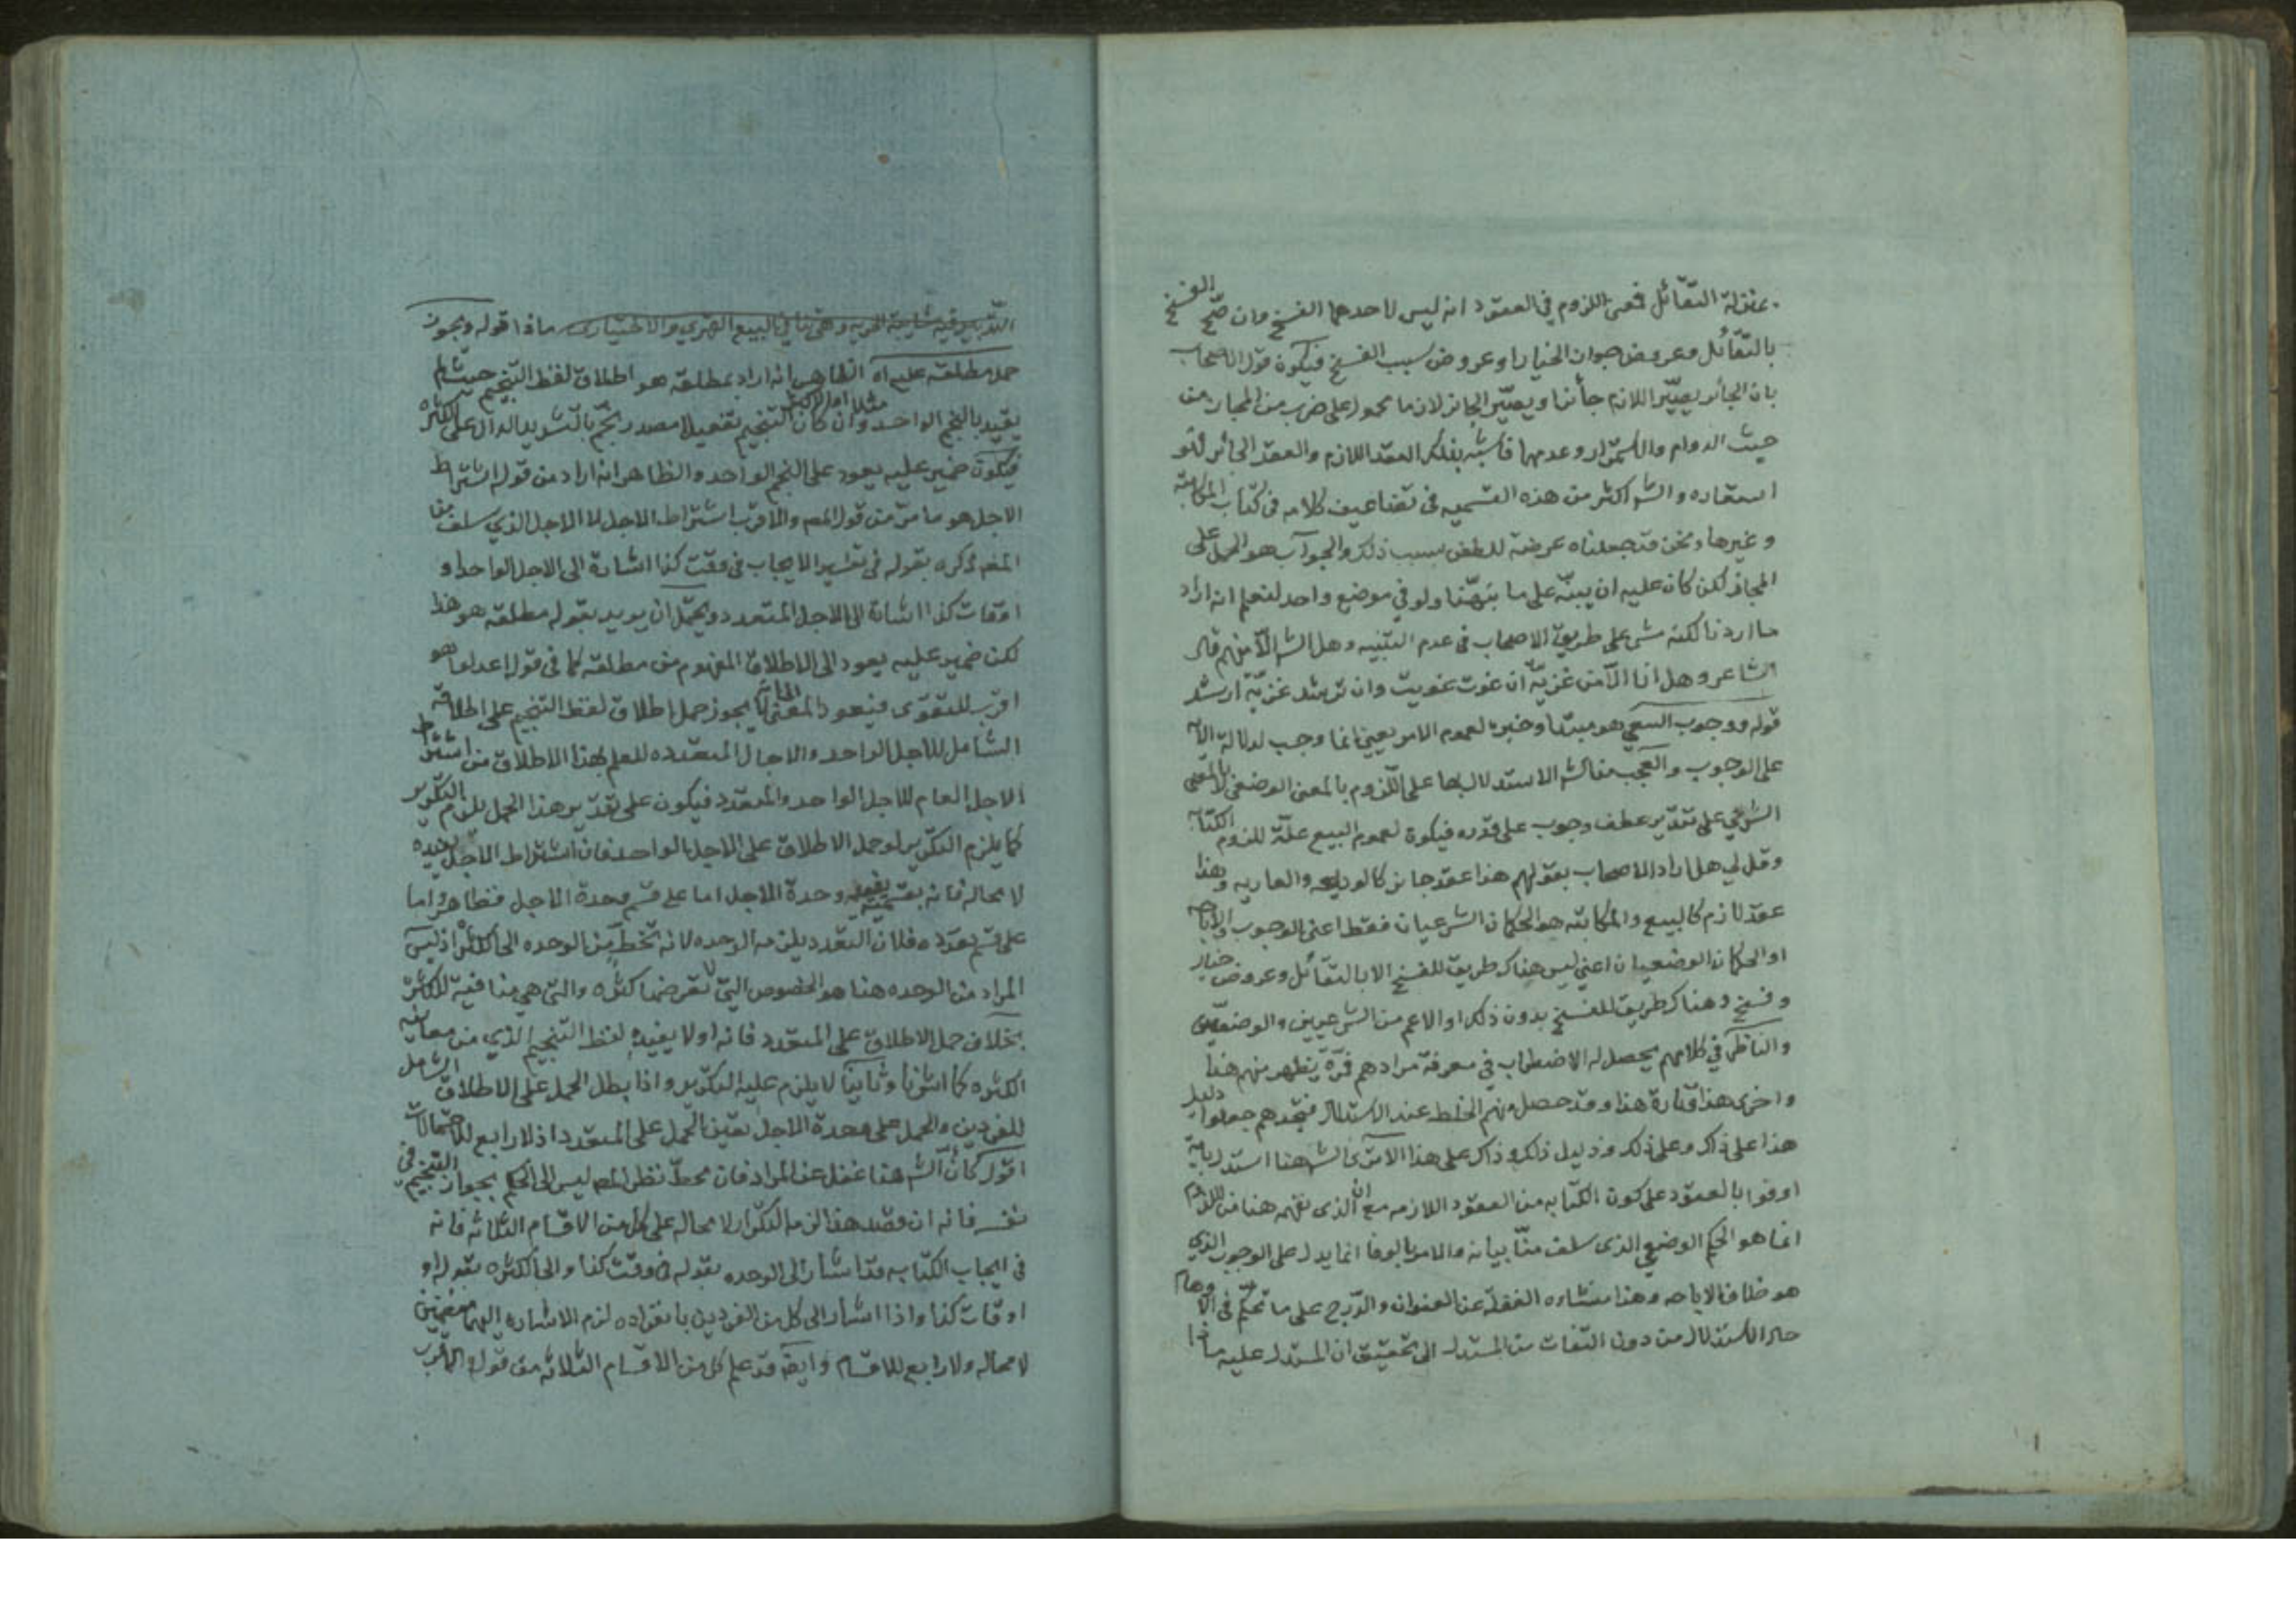 بمنزلة التقائل فمعنى اللزوم في العقود انه ليس لاحدهما الفسخ وان صح الفسخ
بالتقائل وعروض جواز الخيار او عروض سبب الفسخ فيكون قول الاصحاب
بان الجائز يصير اللازم جائزا ويصير الجائز لازما محمول على ضرب من المجاز من
حيث الدوام والاستمرار وعدمها فاشبه بفلك العقد اللازم والعقد الجائز
استعاره والشه اكثر من هذه القسميه في تضاعيف كلامه في كتاب المكاتبة
وغيرها ونحن قد جعلناه عرضة للطعن بسبب ذلك والجواب هو الحمل على
المجاز لكن كان عليه ان ينبه على ما نبهنا ولو في موضع واحد لنعلم انه اراد
ما اردنا لكنه مشى على طريق الاصحاب في عدم التنبيه وهل الشه الا منهم قال
الشاعر وهل انا الا من غزية ان غوت غويت وان ترشد غزية ارشد
قوله ووجوب السعي هو مبتدا وخبره لعموم الامر يعني انما وجب لدلالة الامر
على الوجوب والعجب من الشه الاستدلال بها على اللزوم بالمعنى الوضعي لا بالمعنى
الشرعي على تقدير عطف وجوب على قدره فيكون لعموم البيع علة للزوم الكتابه
وقل لي هل اراد الاصحاب بقولهم هذا عقد جايز كالوديعه والعاريه وهذا
عقد لازم كالبيع والمكاتبه هو الحكمان الشرعيان فقط اعني الوجوب والاباحه
او الحكمان الوضعيان اعني ليس هناك طريق للفسخ الا بالتقائل وعروض خيار
وفسخ وهناك طريق للفسخ بدون ذلك او الاعم من الشرعيين والوضعيين
والناظر في كلامهم يحصل له الاضطراب في معرفة مرادهم فمرة يظهر منهم هذا
واخرى هذا وتارة هذا وقد حصل منهم الخلط عند الاستدلال فتجدهم جعلوا دليل
هذا على ذاك وعلى ذلك ودليل ذلك وذاك على هذا الا ترى الشه هنا استدل باية
اوفوا بالعقود على كون الكتابه من العقود اللازمه مع ان الذي نفهمه هنا من اللزوم
انما هو الحكم الوضعي الذي سلف منا بيانه والامر بالوفا انما يدل على الوجوب الذي
هو خلاف الاباحه وهذا منشاوه الغفلة عن العنوان والدرج على ما تحكم في الاوهام
حال الاستدلال من دون التفات من المستدل الى تحقيق ان المستدل عليه ماذا
ماذا قوله ويجوز
حمل مطلقه عليه اه الظاهر انه اراد بمطلقه هو اطلاق لفظ التنجيم حيث لم
يقيد بالنجم الواحد مثلا او الاكثر وان كان التنجيم تفعيلا مصدر نجم بالتشديد الدال على الكثره
فيكون ضمير عليه يعود على النجم الواحد والظاهر انه اراد من قوله اشتراط
الاجل هو ما مر من قول المصـ والاقرب اشتراط الاجل لا الاجل الذي سلف من
المصـ ذكره بقوله في تفسير الايجاب في وقت كذا اشارة الى الاجل الواحد او
اوقات كذا اشارة الى الاجل المتعدد ويحتمل ان يريد بقوله مطلقه هو هذا
لكن ضمير عليه يعود الى الاطلاق المفهوم من مطلقه كما في قوله اعدلوا هو
اقرب للتقوى فيعود المعنى الى انه يجوز حمل اطلاق لفظ التنجيم على اطلاقه
الشامل للاجل الواحد والاجال المتعدده للعلم بهذا الاطلاق من اشتراط
الاجل العام للاجل الواحد والمتعدد فيكون على تقدير هذا الحمل يلزم التكرير
كما يلزم التكرير لو حمل الاطلاق على الاجل الواحد فان اشتراط الاجل يفيده
لا محاله فانه بقسميه يفيد وحدة الاجل اما على قسم وحدة الاجل فظاهر واما
على قسم تعدده فلان التعدد يلزمه الوحده لانه تخطّ من الوحده الى الكثره اذ ليس
المراد من الوحده هنا هو الخصوص التي لا تعرضها كثره والتي هي منافية للكثره
بخلاف حمل الاطلاق على المتعدد فانه اولا يفيده لفظ التنجيم الذي من معانيه
الكثره كما اشرنا وثانيا لا يلزم عليه التكرير واذا بطل الحمل على الاطلاق الشامل
للفردين والحمل على وحدة الاجل تعين الحمل على المتعدد اذ لا رابع للاحتمالات
اقول كان الشه هنا غفل عن المراد فان محط نظر المصـ ليس الى الحكم بجواز التنجيم في
نفسه فانه ان قصد هذا لزمه التكرار لا محاله على كل من الاقسام الثلاثه فانه
في ايجاب الكتابه قد اشار الى الوحده بقوله في وقت كذا والى الكثره بقوله او
اوقات كذا واذا اشار الى كل من الفردين بانفراده لزم الاشاره اليهما
لا محاله ولا رابع للاقسام وايضا قد علم كل من الاقسام الثلاثه من قوله والاقرب